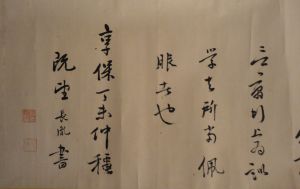 行上為訓
学者所当佩
服者也
享保丁未仲穐
既望 長胤書